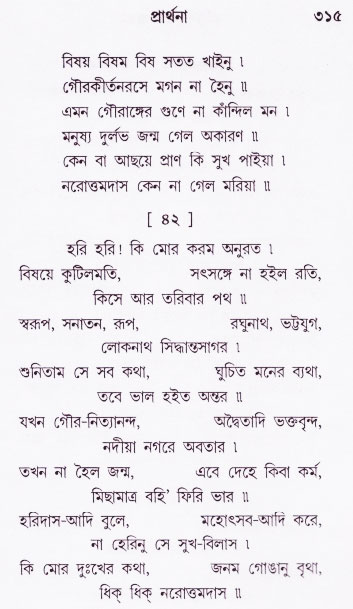 প্রার্থনা ৩১৫
বিষয় বিষম বিষ সতত খাইনু ৷
গৌরকীর্তনরসে মগন না হৈনু ॥
এমন গৌরাঙ্গের গুণে না কাঁন্দিল মন ৷
মনুষ্য দুর্লভ জন্ম গেল অকারণ ॥
কেন বা আছয়ে প্রাণ কি সুখ পাইয়া ৷
নরোত্তমদাস কেন না গেল মরিয়া ॥
[ ৪২ ]
হরি হরি! কি মোর করম অনুরত ৷
বিষয়ে কুটিলমতি, সৎসঙ্গে না হইল রতি,
কিসে আর তরিবার পথ ॥
স্বরূপ, সনাতন, রূপ, রঘুনাথ, ভট্টযুগ,
লোকনাথ সিদ্ধান্তসাগর ৷
শুনিতাম সে সব কথা, ঘুচিত মনের ব্যথা,
তবে ভাল হইত অন্তর ॥
যখন গৌর-নিত্যানন্দ, অদ্বৈতাদি ভক্তবৃন্দ,
নদীয়া নগরে অবতার ৷
তখন না হৈল জন্ম, এবে দেহে কিবা কর্ম,
মিছামাত্র বহি' ফিরি ভার ॥
হরিদাস-আদি বুলে, মহোৎসব-আদি করে,
না হেরিনু সে সুখ-বিলাস ৷
কি মোর দুঃখের কথা, জনম গোঙানু বৃথা,
ধিক্ ধিক্ নরোত্তমদাস ॥